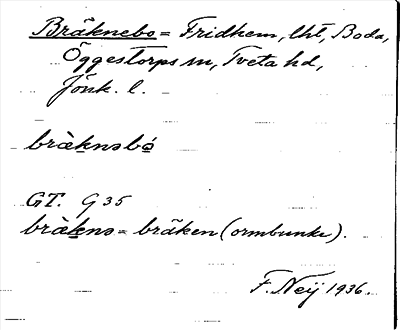 Bräknebo = Fridhem, lht, Boda,
Öggestorps sn, Tveta hd,
Jönk. l.
brὰknəbó
GT. G 35
brὰknə = bräken (ormbunke).
F. Neij 1936.